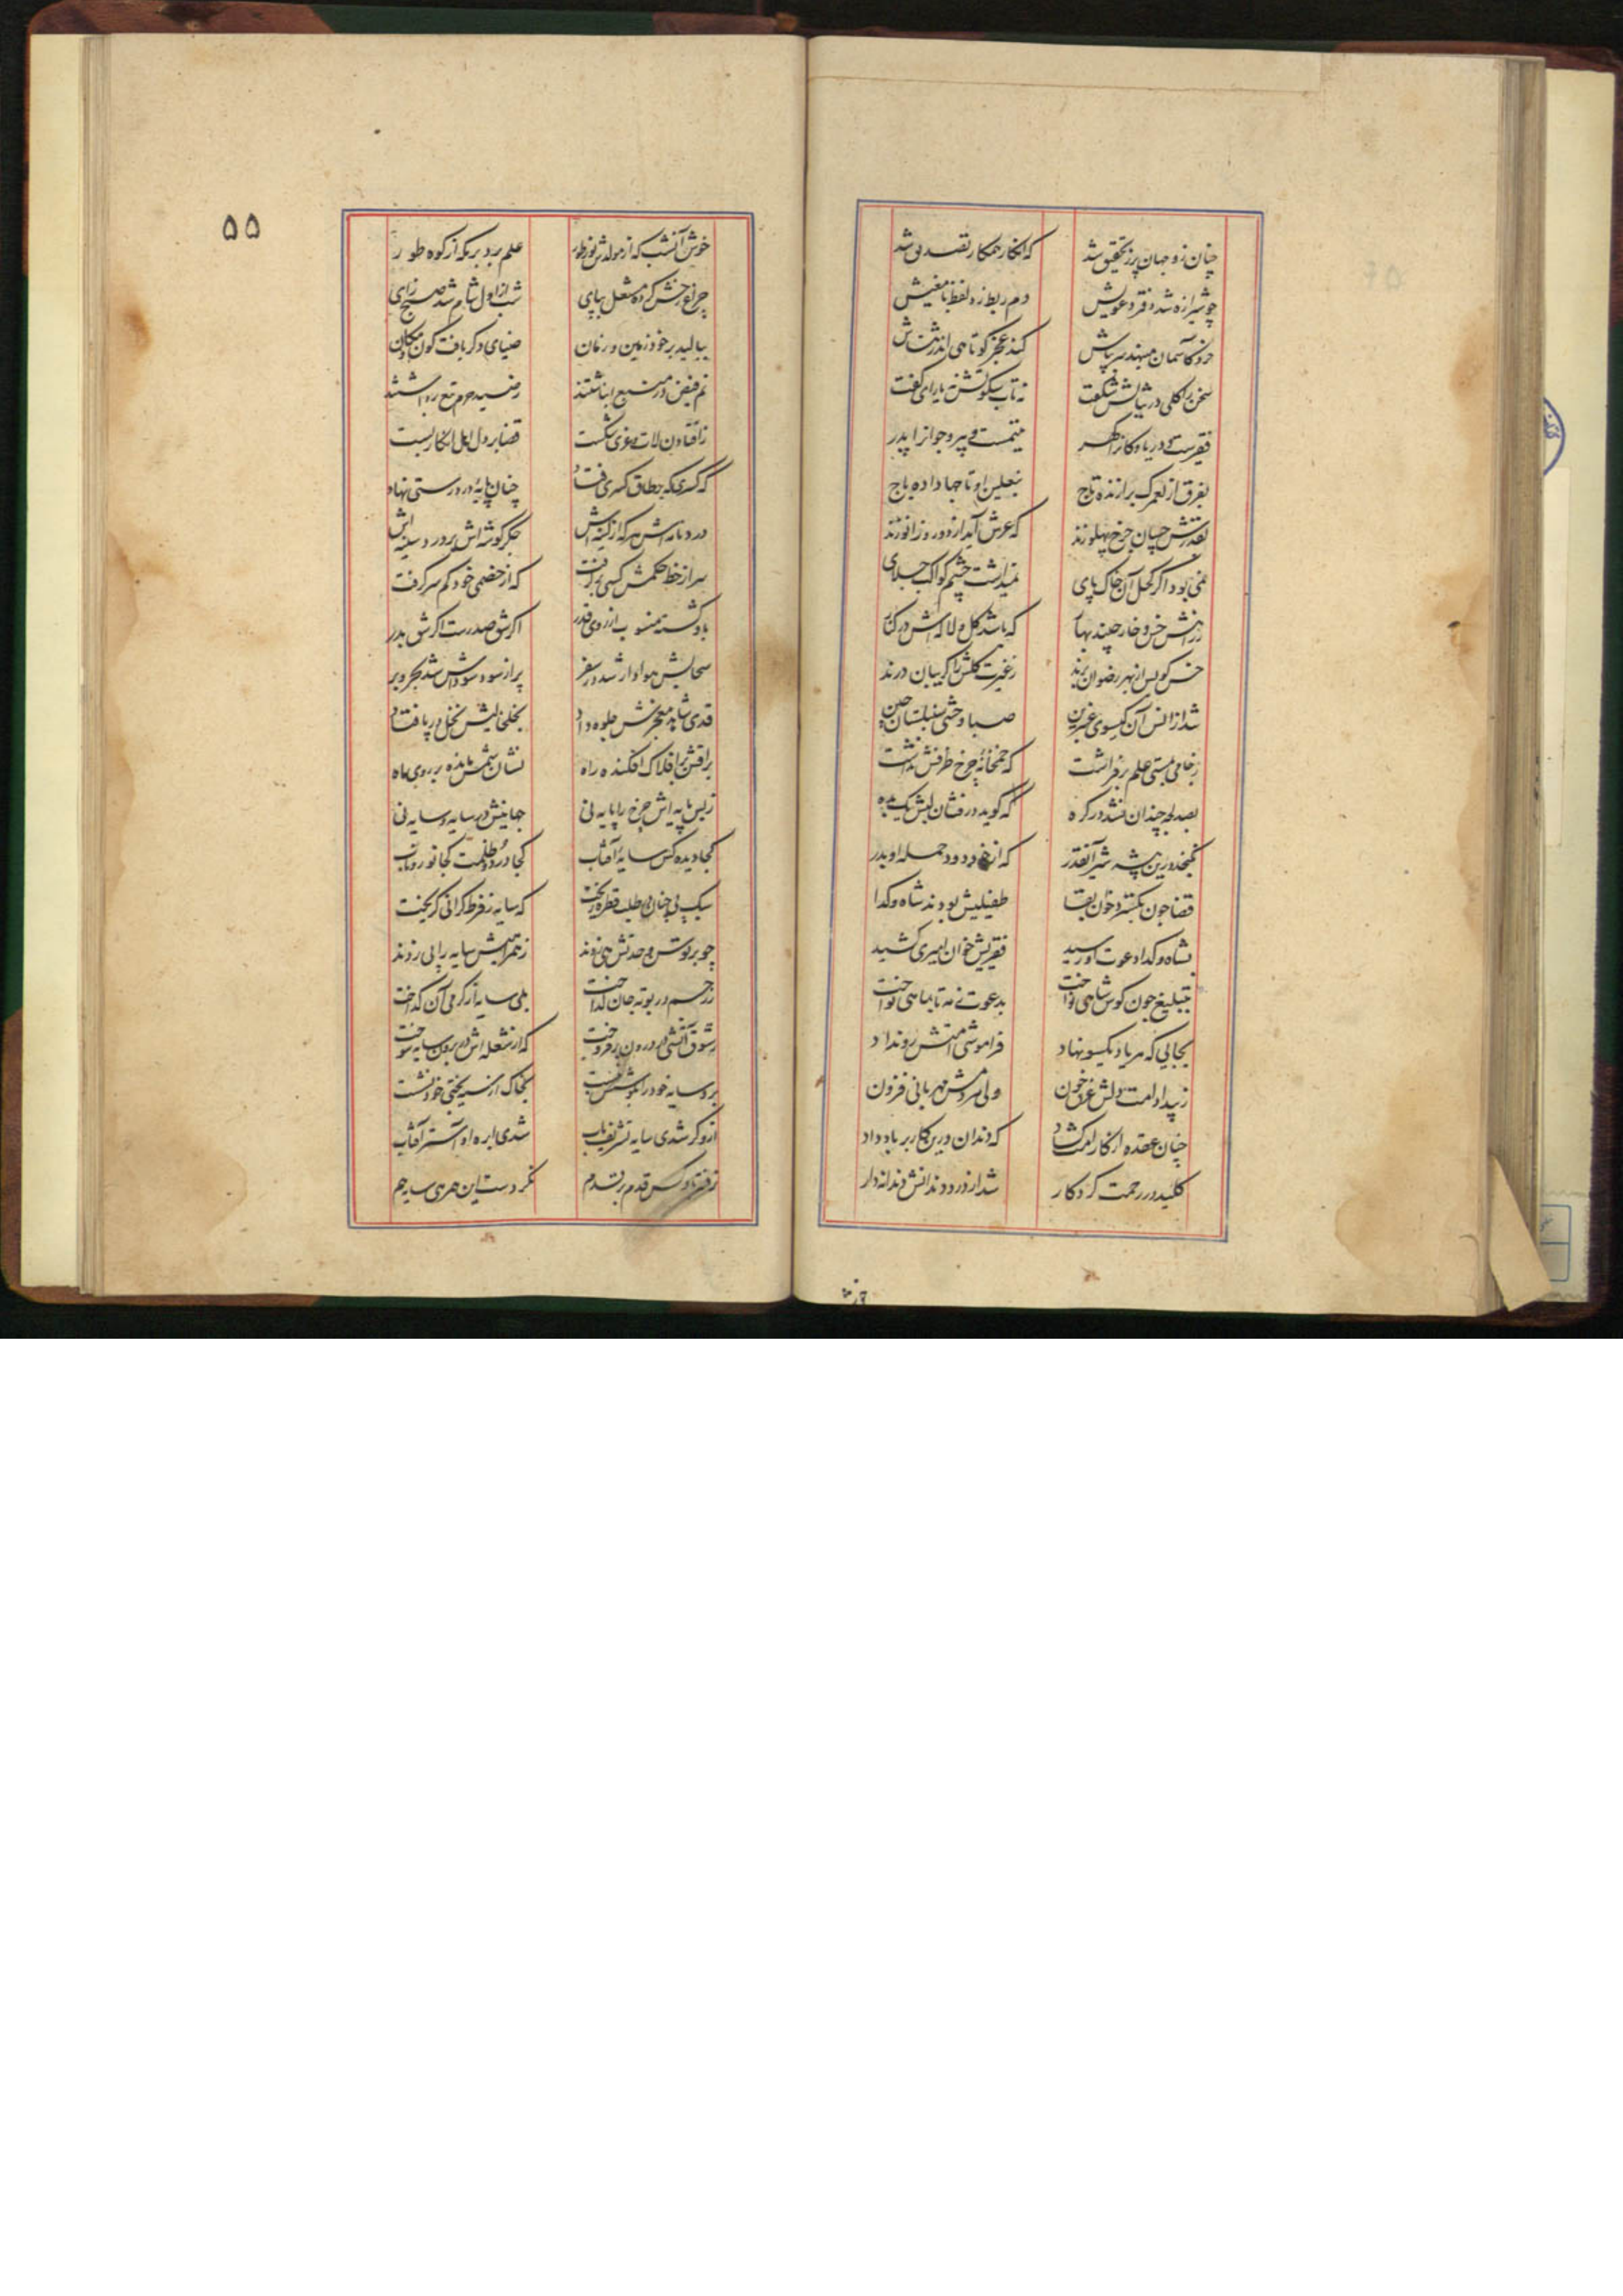 چنان زو جهان پر ز تحقیق شد که انکار همکار تصدیق شد
چو شیرازه شد دفتر دعویش دم ربط زد لفظ با معنیش
خرد کآسمان مینهد سر بپاش کند عجز کوتاهی اندر ثناش
سخن را گلی در ثنایش شکفت نه تاب سکوتش نه یارای گفت
فقیرست و دریا و کانرا گهر یتیمست و پیر و جوانرا پدر
بفرق از لعمرک برازنده تاج بنعلین او تاجها داده باج
بقدرش چسان چرخ پهلو زند که عرش آید از دور و زانو زند
نمی بود اگر کحل آن خاک پای نمیداشت چشم کواکب جلای
ز راهش خس و خار چیند بهار که باشد گل و لاله اش در کنار
خس کویش از بهر رضوان برند ز غیرت گلش را گریبان درند
شد از انس آن گیسوی عنبرین صبا وحشی سنبلستان چین
ز جامی بمستی علم بر فراشت که خمخانهٔ چرخ ظرفش نداشت
بصد لجه چندان نشد در گره که گوید درفشان لبش یک بده
نگنجد درین بیشه شیر آنقدر که از خود دود حمله او بدر
قضا چون بگسترد خوان بقا طفیلیش بودند شاه و گدا
بشاه و گدا دعوت او رسید فقریش خوان امیری کشید
بتبلیغ چون کوس شاهی نواخت بدعوت ز مه تا بماهی نواخت
بجایی که هر یاد یکسو نهاد فراموشی امتش رو نداد
ز بیداد امت دلش غرق خون ولی هر دمش مهربانی فزون
چنان عقده از کار امت گشاد که دندان درین کار بر باد داد
کلید در رحمت کردگار شد از درد دندانش دندانه دار
۵۵
خوش آنشب که از مولدش نور طور علم زد بر مکه از کوه طور
چراغ رخش کرده مشعل بپای شب از اول شام شد صبح زای
ببالید بر خود زمین و زمان ضیای دگر یافت کون و مکان
نم فیض در منبع انباشتند
ز افتادن لات و عزی شکست قضا بر دل اهل انکار بست
که کسری که بر طاق کسری فتاد چنان پایه در درستی نهاد
جگر گوشه اش پرورد سینه اش
سر از خط حکمش کسی برگرفت که از خصمی خود کم سر گرفت
باو گشته منسوب از روی قدر اگر شق صدرست اگر شق بدر
سحابش هوادار شد در سفر پر از سود سوداش شد بحر و بر
قدی شاهد معجزش جلوه داد
براقش بر افلاک افکنده راه نشان سمش مانده بر روی ماه
ز بس پایه اش چرخ را پایه نی جهانیش در سایه و سایه نی
کجا دیده کس سایهٔ آفتاب کجا درد ظلمت کجا نور ناب
سبک پی چنان در طلب قطره ریخت که سایه ز فرط گرانی گریخت
چو بر لوتش وحدتش می زدند ز همراهیش سایه را پی زدند
بلی سایه از گرمی آن گداخت
ز شوق آتشی در درون بر فروخت که از شعله اش در برون سایه سوخت
برو سایه خود را بخاک از سیه بختی خود نشست
ازو گر شدی سایه تشریف یاب شدی ابرهٔ او آستر آفتاب
نکردست این همرهی سایه هم